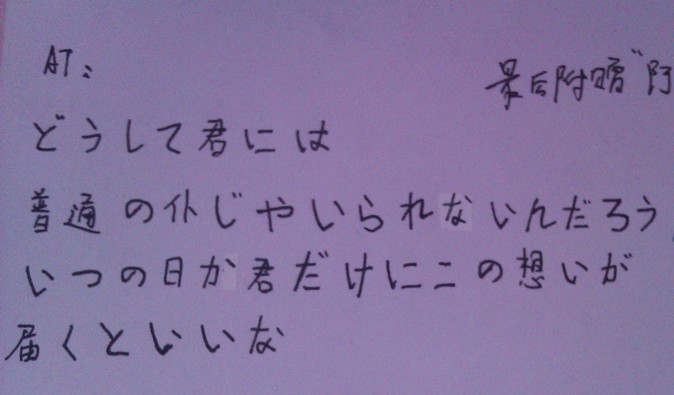 AT:
最后附赠"阿
どうして君には
普通の仆じやいられないんだろう
いつの日か君だけにこの想いが
届くといいな